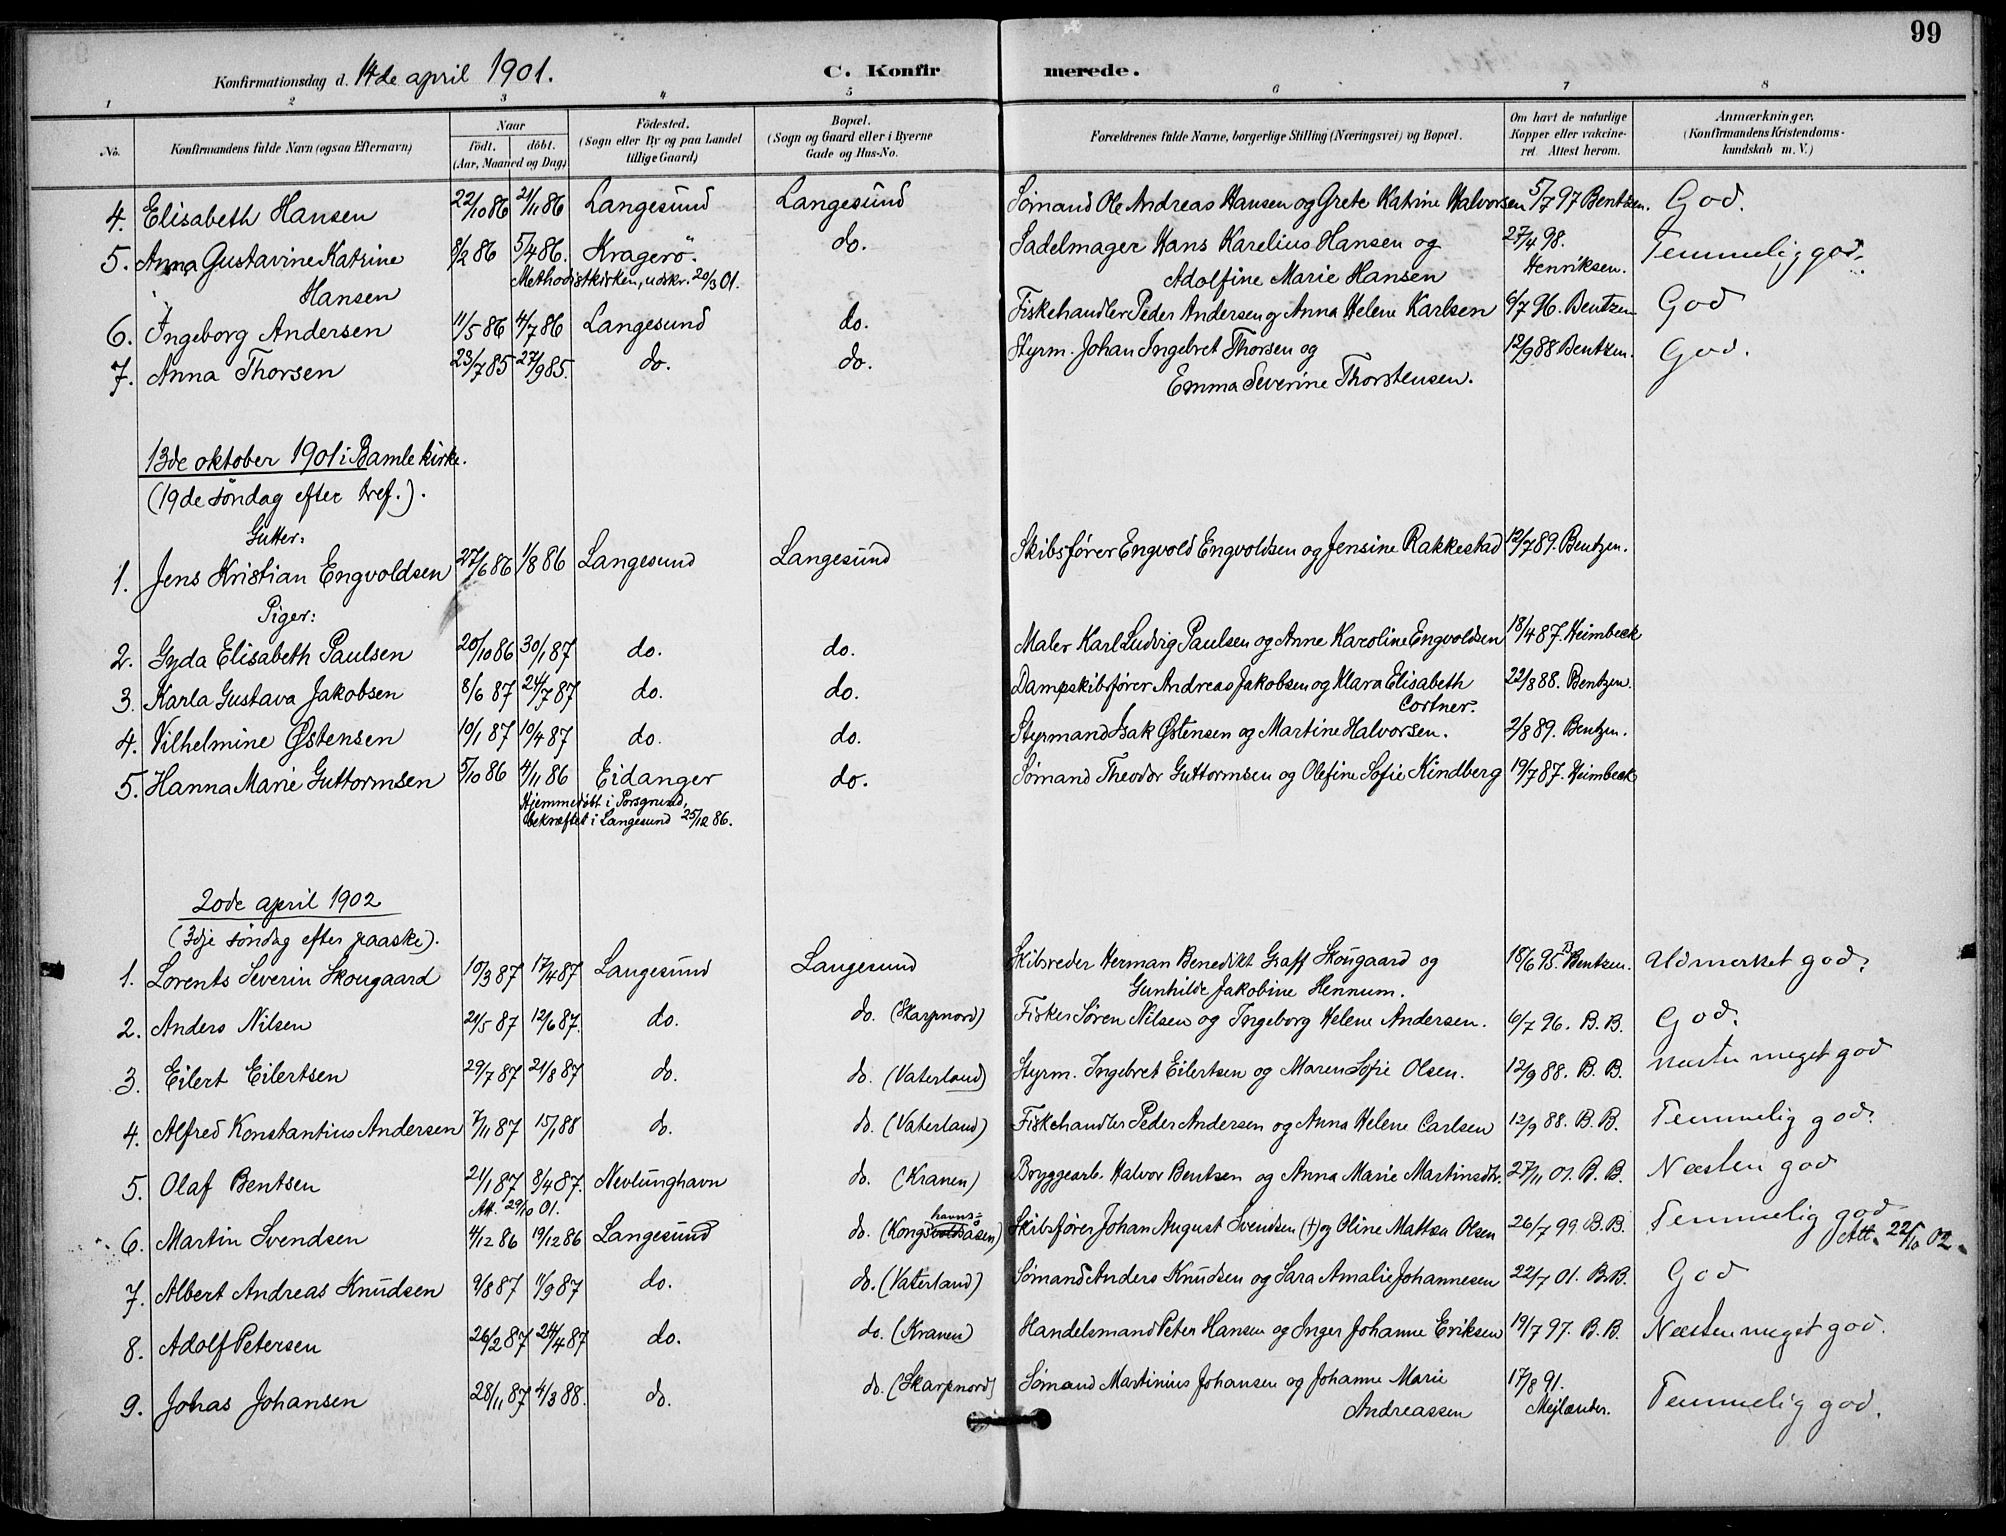 99
Konfirmationsdag d. 14de april 1901. C. Konfirmerede.
1 2 3 4 5 6 7 8
No. Konfirmandens fulde Navn (ogsaa Efternavn) Naar födt. döbt. (Aar, Maaned og Dag) Födested. (Sogn eller By og paa Landet tillige Gaard) Bopæl. (Sogn og Gaard eller i Byerne Gade og Hus-No. Forældrenes fulde Navne, borgerlige Stilling (Næringsvei) og Bopæl. Om havt de naturlige Kopper eller vakcineret. Attest herom. Anmærkninger. (Konfirmandens Kristendomskundskab m. V.)
4. Elisabeth Hansen 22/10 86 21/11 86 Langesund Langesund Sømand Ole Andreas Hansen og Grete Katrine Halvorsen 5/7 97 Bentzen. God.
5. Anna Gustavine Katrine 8/2 86 5/4 86. Kragerö. do. Sadelmager Hans Karelius Hansen og 27/4 98. Temmelig god.
Hansen Methodistkirken, udskr. 20/3 01. Adolfine Marie Hansen Henriksen.
6. Ingeborg Andersen 11/5 86 4/7 86 Langesund do. Fiskehandler Peder Andersen og Anna Helene Karlsen 6/7 96. Bentzen God
7. Anna Thorsen 23/7 85 27/9 85. do. do. Styrm. Johan Ingebret Thorsen og 12/9 88 Bentzen. God.
Emma Severine Thorstensen.
13de oktober 1901 i Bamle kirke.
(19de söndag efter tref.).
Gutter:
1. Jens Kristian Engvoldsen 27/6 86 1/8 86 Langesund Langesund Skibsfører Engvold Engvoldsen og Jensine Rakkestad 12/7 89. Bentzen.
Piger:
2. Gyda Elisabeth Paulsen 20/10 86 30/1 87 do. do. Maler Karl Ludvig Paulsen og Anne Karoline Engvoldsen 18/4 87. Heimbeck
3. Karla Gustava Jakobsen 8/6 87 24/7 87 do. do. Dampskibsfører Andreas Jakobsen og Klara Elisabeth 22/8 88. Bentzen.
Cortner.
4. Vilhelmine Østensen 10/1 87 10/4 87 do. do. Styrmand Isak Østensen og Martine Halvorsen. 2/8 89. Bentzen.
5. Hanna Marie Guttormsen 5/10 86 4/11 86 Eidanger do. Sømand Theodor Guttormsen og Olefine Sofie Kindberg 19/7 87. Heimbeck
Hjemmedöbt i Porsgrund,
bekræftet i Langesund 25/12 86.
20de april 1902
(3dje söndag efter paaske).
1. Lorents Severin Skougaard 10/3 87 17/4 87 Langesund Langesund Skibsreder Herman Benedikt Graff Skougaard og 18/6 95. B Bentzen. Udmerket god.
Gunhilde Jakobine Hennum.
2. Anders Nilsen 21/5 87 12/6 87. do. do. (Skarpnord) Fisker Søren Nilsen og Ingeborg Helene Andersen. 6/7 96. B. B. God.
3. Eilert Eilertsen 29/7 87 21/8 87 do. do. (Vaterland) Styrm. Ingebret Eilertsen og Maren Sofie Olsen. 12/9 88. B. B. næsten meget god
4. Alfred Konstantius Andersen 7/11 87 15/1 88 do. do. (Vaterland) Fiskehandler Peder Andersen og Anna Helene Carlsen 12/9 88. B. B. Temmelig god.
5. Olaf Bentsen 21/1 87 8/4 87. Nevlunghavn do. (Kranen) Bryggearb. Halvor Bentsen og Anna Marie Martinsdtr. 27/11 01. B. B. Næsten god
Att. 29/10 01. havns-
6. Martin Svendsen 4/12 86 19/12 86 Langesund do. (Kongsåsen) Skibsfører Johan August Svendsen (†) og Oline Mattea Olsen 26/7 99. B. B. Temmelig god
Att. 22/10 02.
7. Albert Andreas Knudsen 9/8 87 11/9 87 do. do. (Vaterland) Sømand Anders Knudsen og Sara Amalie Johannesen 22/7 01. B. B. God
8. Adolf Petersen 26/2 87 24/4 87 do. do. (Kranen) Handelsmand Peter Hansen og Inger Johanne Eriksen 19/7 97. B. B. Næsten meget god.
9. Johas Johansen 28/11 87 4/3 88. do. do. (Skarpnord) Sømand Martinius Johansen og Johanne Marie 17/8 91. Temmelig god.
Andreassen Mejlænder.